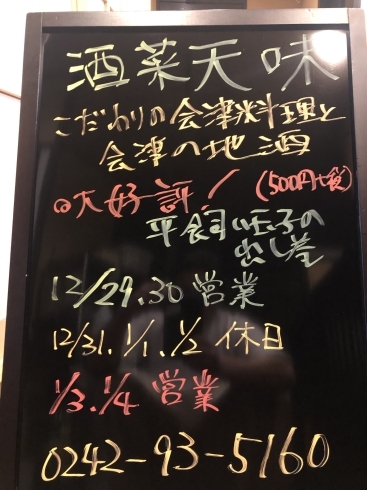 酒菜天味
こだわりの会津料理と
会津の地酒
◎大好評！(500円+税)
平飼い玉子の
出し巻
12/29.30 営業
12/31. 1/1. 1/2 休日
1/3. 1/4 営業
0242-93-5160